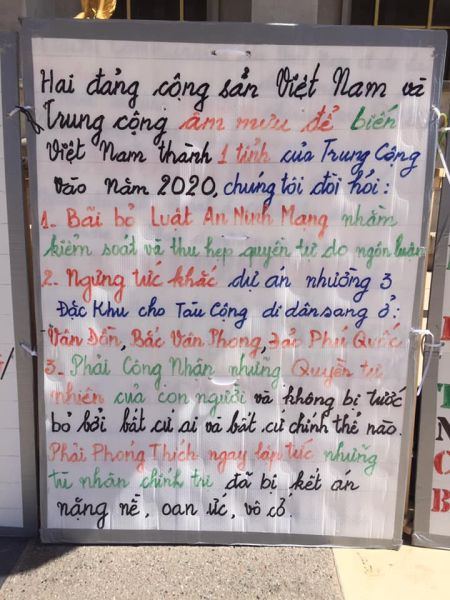 Hai đảng cộng sản Việt Nam và
Trung cộng âm mưu để biến
Việt Nam thành 1 tỉnh của Trung Cộng
vào năm 2020, chúng tôi đòi hỏi:
1_ Bãi bỏ Luật An Ninh Mạng nhằm
kiểm soát và thu hẹp quyền tự do ngôn luận
2_ Ngưng tức khắc dự án nhường 3
Đặc Khu cho Tàu Cộng di dân sang ở:
Vân Đồn, Bắc Vân Phong, Đảo Phú Quốc
3_ Phải Công Nhận những Quyền tự
nhiên của con người và không bị tước
bỏ bởi bất cứ ai và bất cứ chính thể nào.
Phải Phóng Thích ngay lập tức những
tù nhân chính trị đã bị kết án
nặng nề, oan ức, vô cớ.